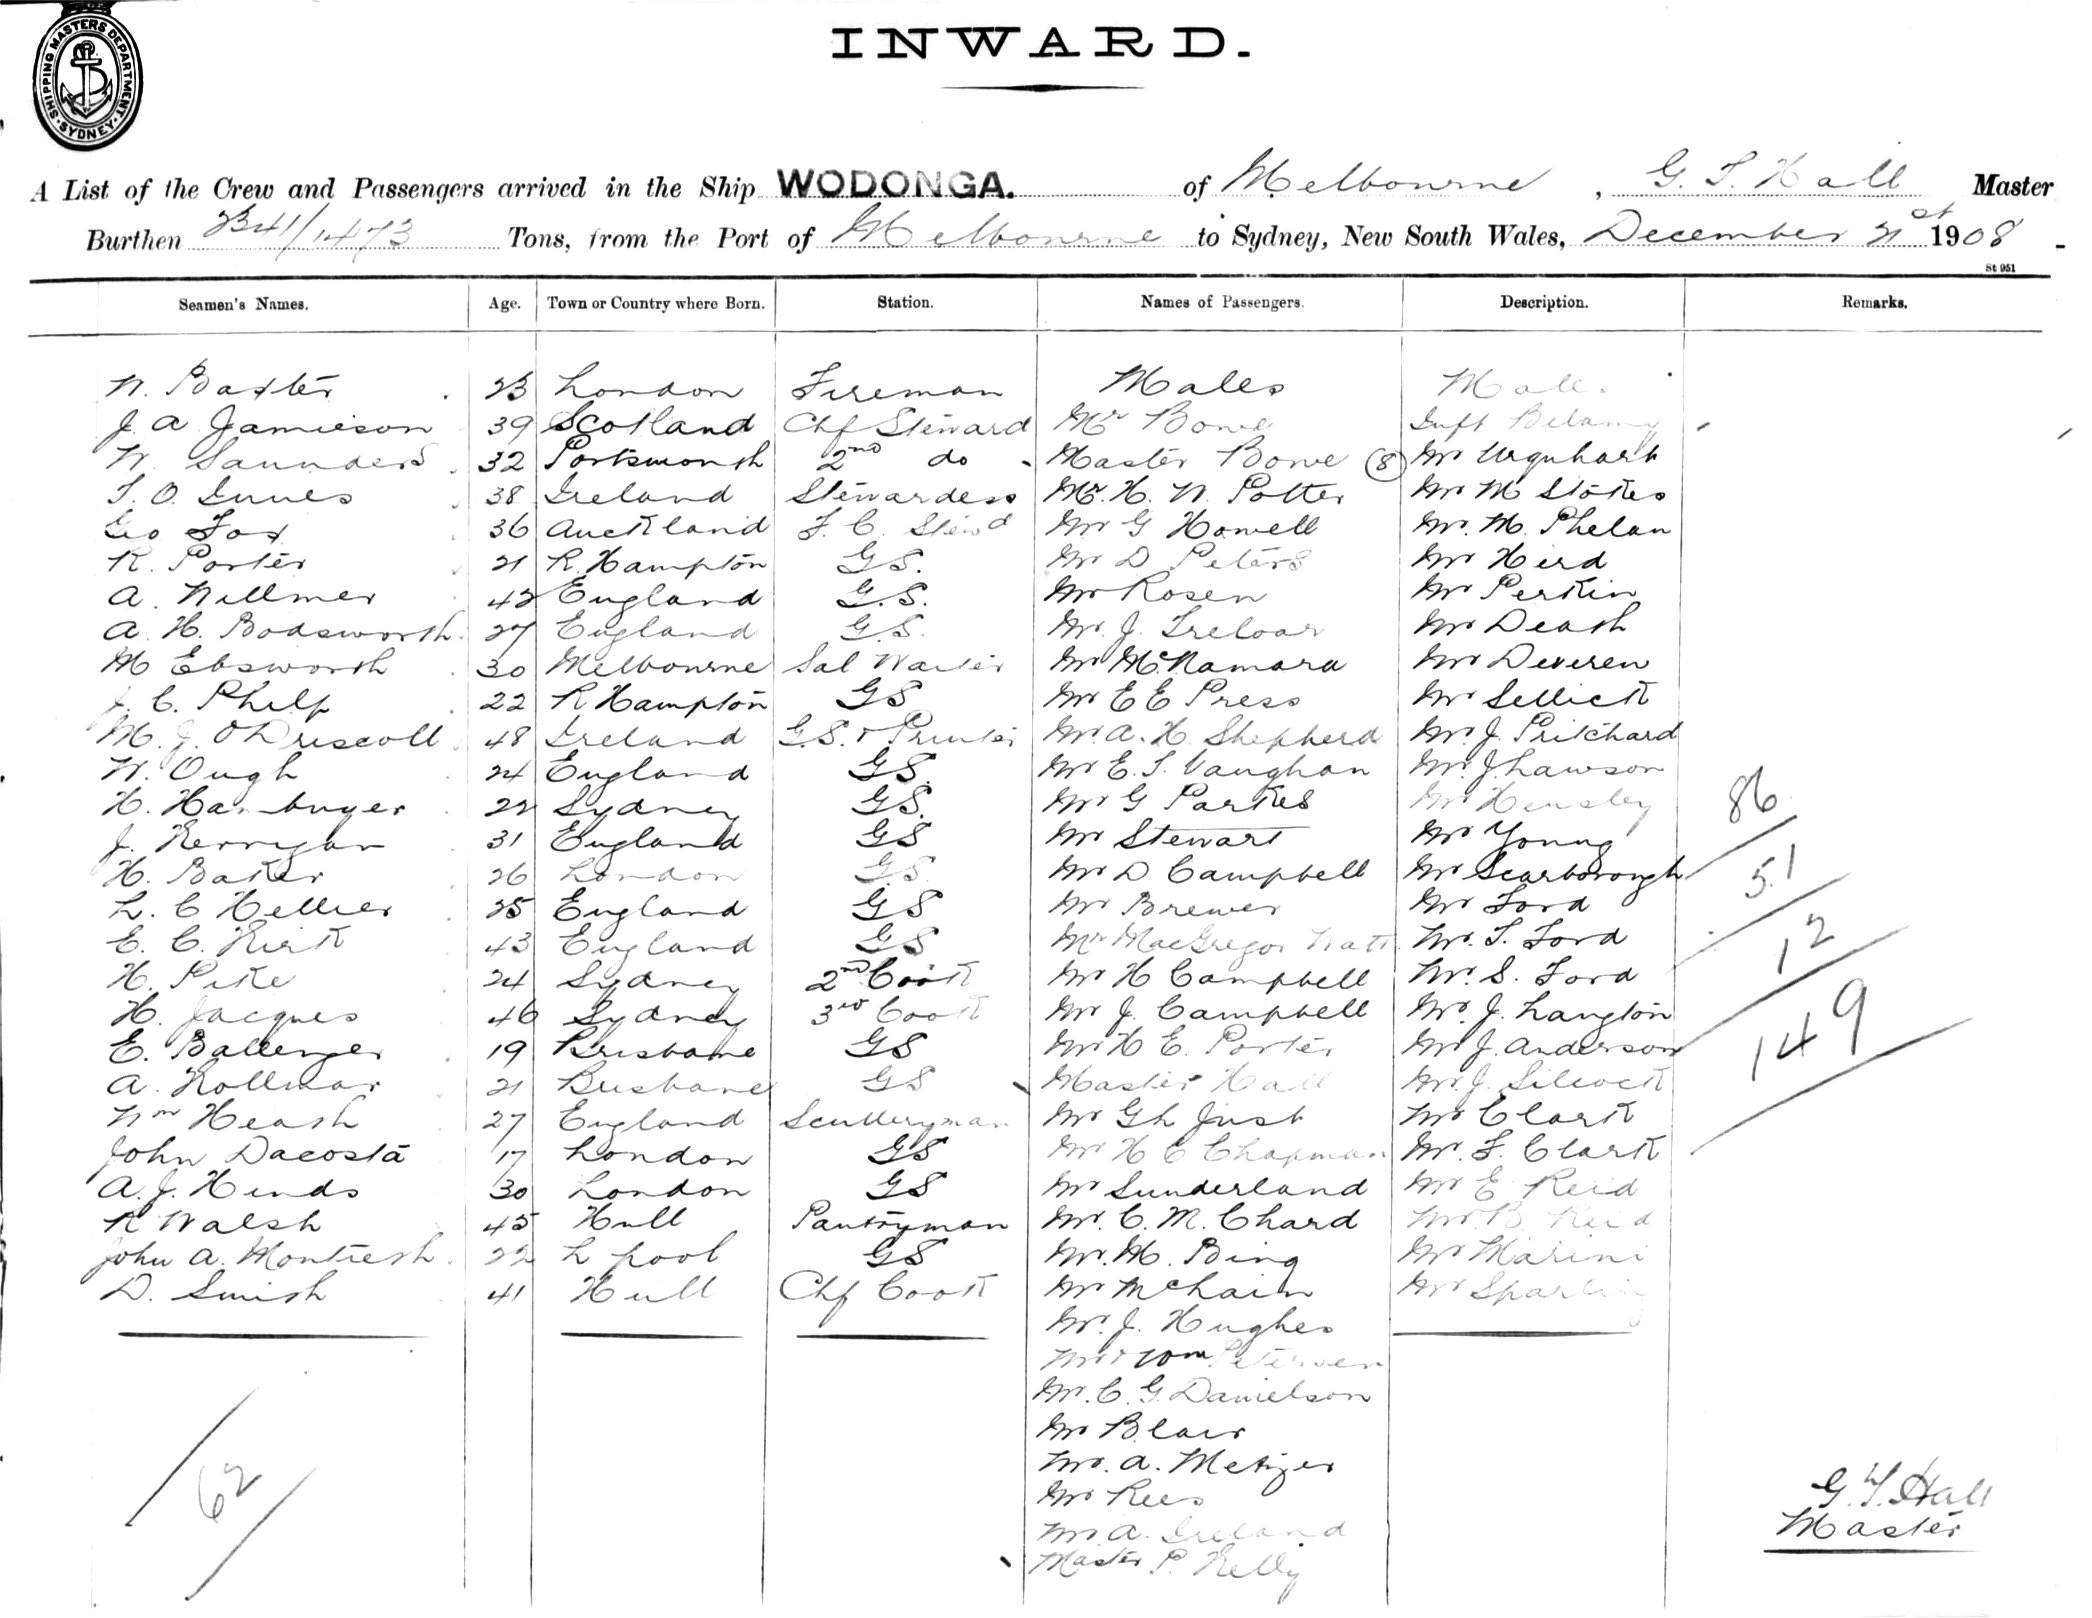 SHIPPING MASTERS DEPARTMENT · SYDNEY ·
INWARD.
A List of the Crew and Passengers arrived in the Ship WODONGA. of Melbourne, G. T. Hall Master
Burthen 2341/1473 Tons, from the Port of Melbourne to Sydney, New South Wales, December 21st 1908
St 951
Seamen's Names. Age. Town or Country where Born. Station. Names of Passengers. Description. Remarks.
W. Baxter 23 London Fireman Males Male
J. A Jamieson 39 Scotland Chf Steward Mr Bowe
W. Saunders 32 Portsmouth 2nd do Master Bowe (8) Mr Urquhart
T. O. Innes 38 Ireland Stewardess Mr. H. W. Potter Mr M Stokes
Geo Fox 36 Auckland F. C. Stewd Mr G Howell Mr. M. Phelan
R. Porter 21 R. Hampton G.S. Mr D Peters Mr Hird
A. Willmer 42 England G.S. Mr Rosen Mr Perkin
A. H. Bodsworth 27 England G.S. Mr. J. Treloar Mr Death
M Ebsworth 30 Melbourne Sal Waiter Mr McNamara Mr Deveren
J. C. Philp 22 R Hampton GS Mr E E Press Mr Sellick
M. J. O'Driscoll 48 Ireland G.S. & Printer Mr. A. H. Shepherd Mr. J. Pritchard
W. Ough 24 England GS. Mr E. T. Vaughan Mr. J. Lawson
H. Hamburger 22 Sydney GS. Mr G Parkes Mr Hensley
J. Kerrigan 31 England GS Mr Stewart Mr Young
86
H. Baker 26 London G.S. Mr D Campbell Mr Scarborough
51
L. C Hellier 25 England GS Mr Brewer Mr Ford
E. C. Kirk 43 England GS Mr MacGregor Watt Mr. T. Ford
12
H. Pike 24 Sydney 2nd Cook Mr H Campbell Mr. S. Ford
H. Jacques 46 Sydney 3rd Cook Mr J. Campbell Mr. J. Langton
149
E. Ballenger 19 Brisbane GS Mr H E. Porter Mr J. Anderson
A. Kollmar 21 Brisbane GS Master Hall Mr. J. Silcock
Wm Heash 27 England Sculleryman Mr G L Just Mr Clark
John Dacosta 17 London GS Mr H C Chapman Mr. F. Clark
A. J. Hinds 30 London GS Mr Sunderland Mr E Reid
R Walsh 45 Hull Pantryman Mr. C. M. Chard Mr. B. Reid
John A. Montieth 22 L pool GS Mr. M. Bing Mr Marini
D. Smith 41 Hull Chf Cook Mr McLain Mr Sparling
Mr. J. Hughes
Mr Wm Petersen
Mr. C. G. Danielson
Mr Blair
Mr. A. Metzger
62
Mr Rees
G. T. Hall
Mr A. Ireland
Master
Master P. Kelly